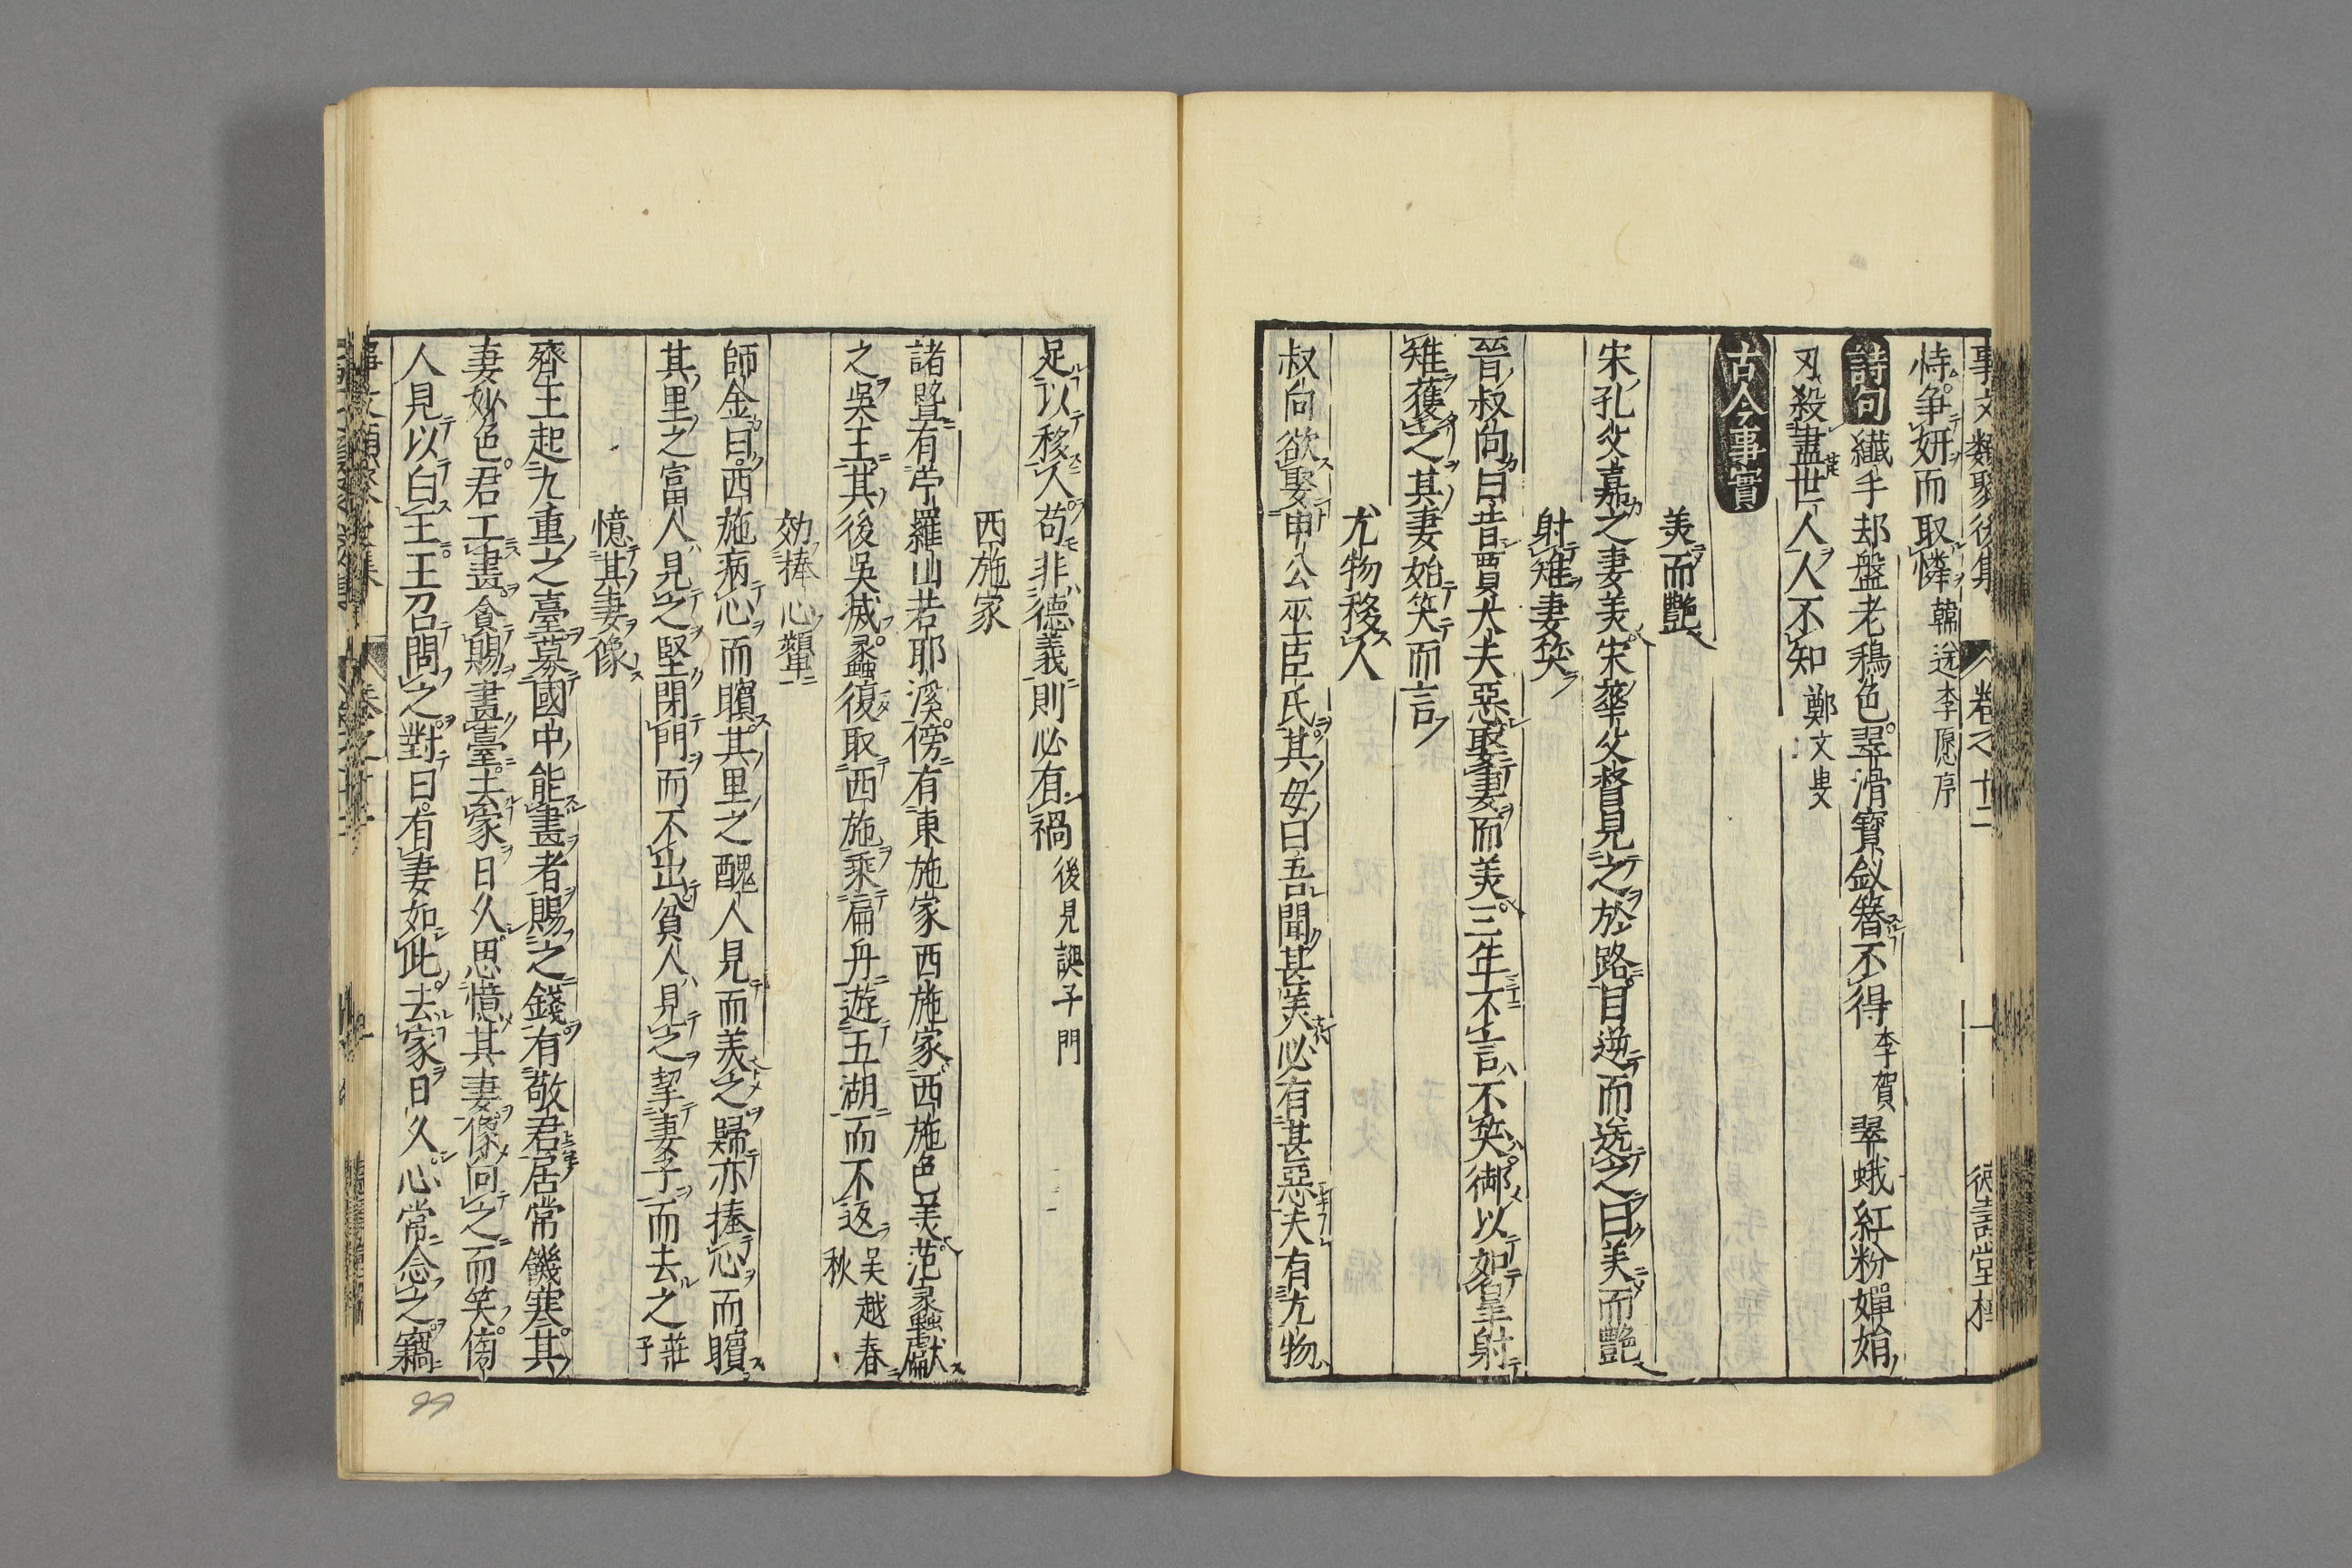 事文類聚後集　卷之十二　德壽堂梓
恃爭妍而取憐韓送李愿序
詩句 纎手却盤老鴉色翠滑寶釵簪不得李賀 翠蛾紅粉嬋娟
刃殺盡世人人不知鄭文叟
古今事實
美而艷
宋孔父嘉之妻美宋華父督見之於路目逆而送之曰美而艷
射雉妻笑
晉叔向曰昔賈大夫惡娶妻而美三年不言不笑御以如皐射
雉獲之其妻始笑而言
尤物移人
叔向欲娶申公巫臣氏其母曰吾聞甚美必有甚惡夫有尤物
足以移人苟非德義則必有禍後見誤子門
西施家
諸暨有苧羅山若耶溪傍有東施家西施家西施色美范蠡獻
之吳王其後吳滅蠡復取西施乘扁舟遊五湖而不返吴越春秋
効捧心顰
師金曰西施病心而矉其里之醜人見而美之歸亦捧心而矉
其里之富人見之堅閉門而不出貧人見之挈妻子而去之莊子
憶其妻像
齊王起九重之臺募國中能畫者賜之錢有敬君居常饑寒其
妻妙色君工畫貪賜畫臺去家日久思憶其妻像向之而笑傍
人見以白王王召問之對曰有妻如此去家日久心常念之竊